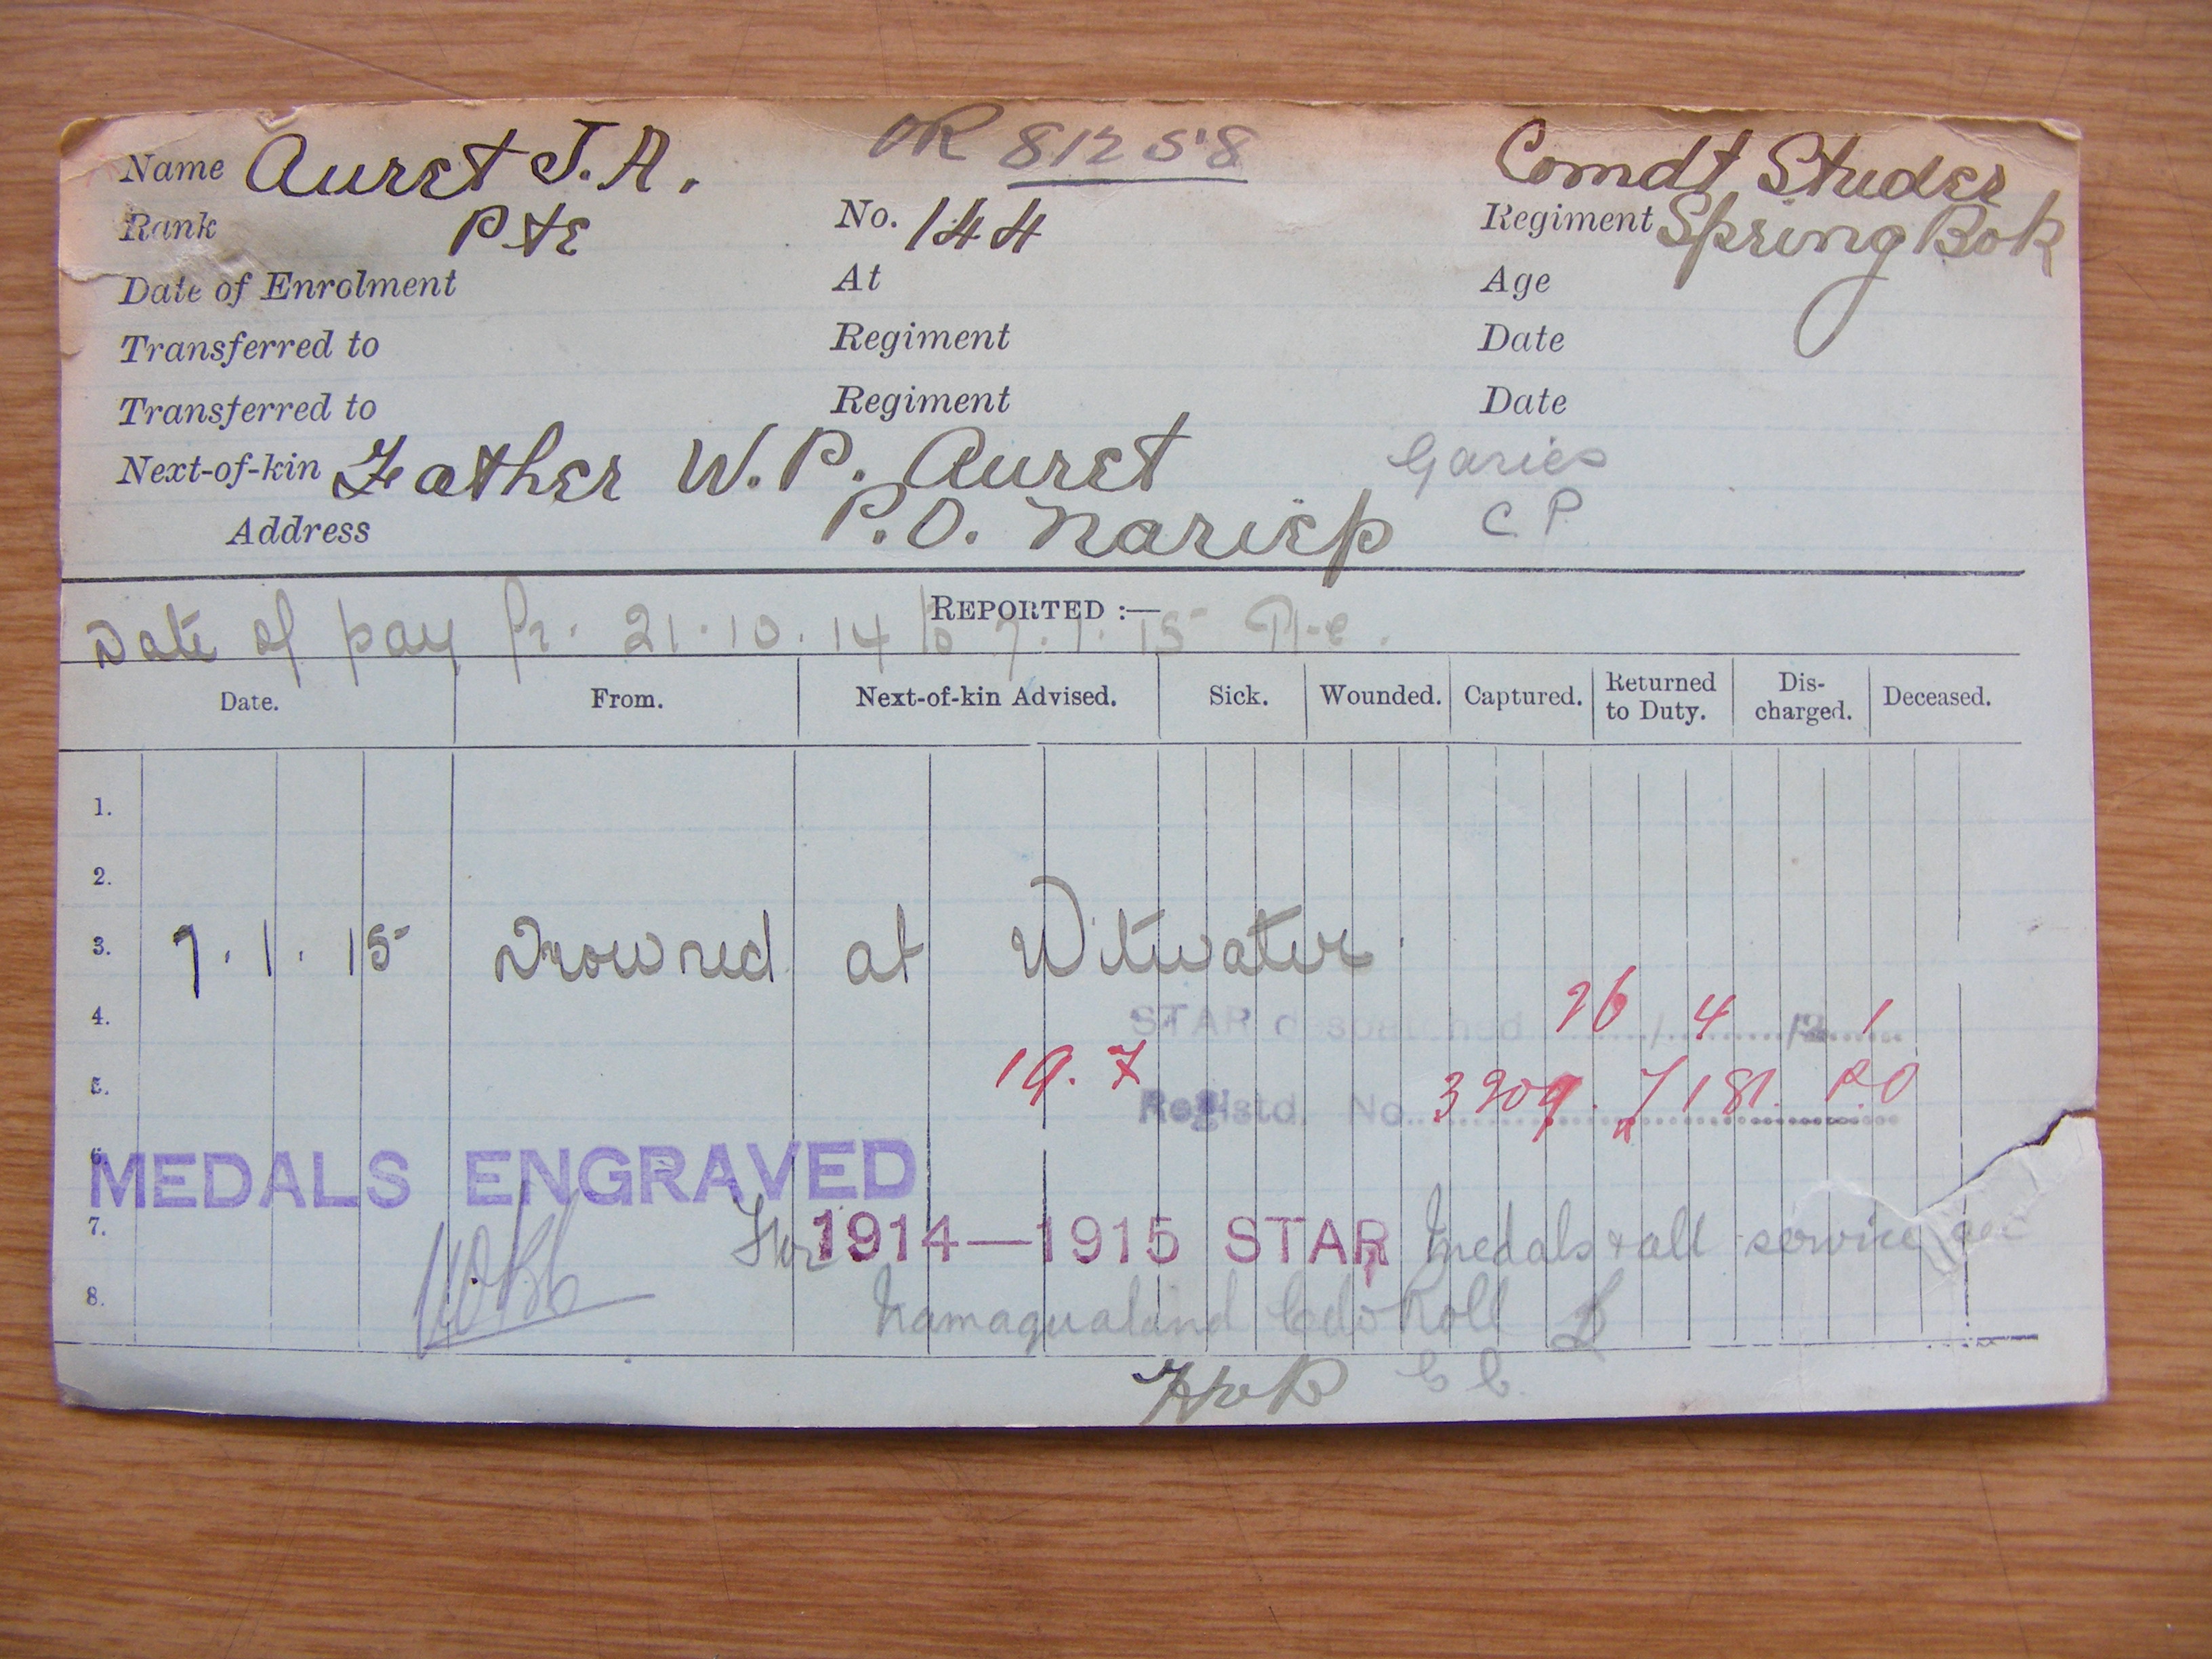 Name Auret J. A. OR 81258 Comdt Studer
Rank Pte No. 144 Regiment Spring Bok
Date of Enrolment At Age
Transferred to Regiment Date
Transferred to Regiment Date
Next-of-kin Father W. P. Auret Garies
Address P.O. Nariep C P
REPORTED :—
Date of pay fr. 21.10.14 to 7.1.15
Date. From. Next-of-kin Advised. Sick. Wounded. Captured. Returned to Duty. Dis-charged. Deceased.
1.
2.
3. 7.1.15 Drowned at Witwater
4. STAR despatched 26 4 1
5. 19.7 Registd. No. 3909
6. MEDALS ENGRAVED
7. 1914—1915 STAR medals & all service
8. Namaqualand Cdo Roll